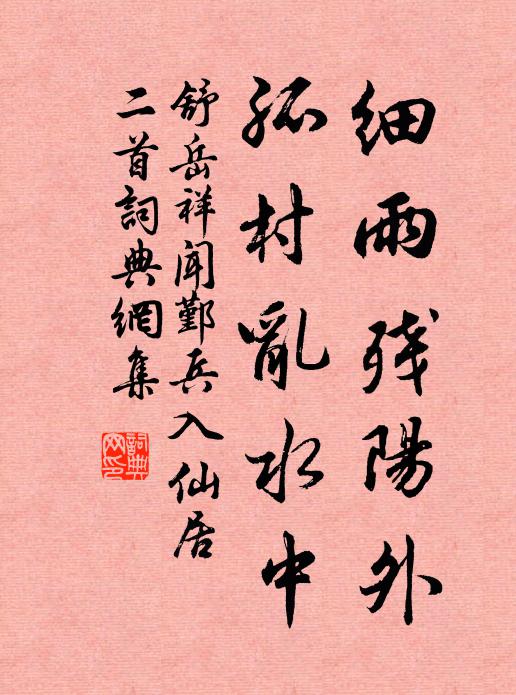 细雨残陽外
孤村亂水中
舒岳祥闻鄞兵入仙居
二首詞典網集
詞典网印